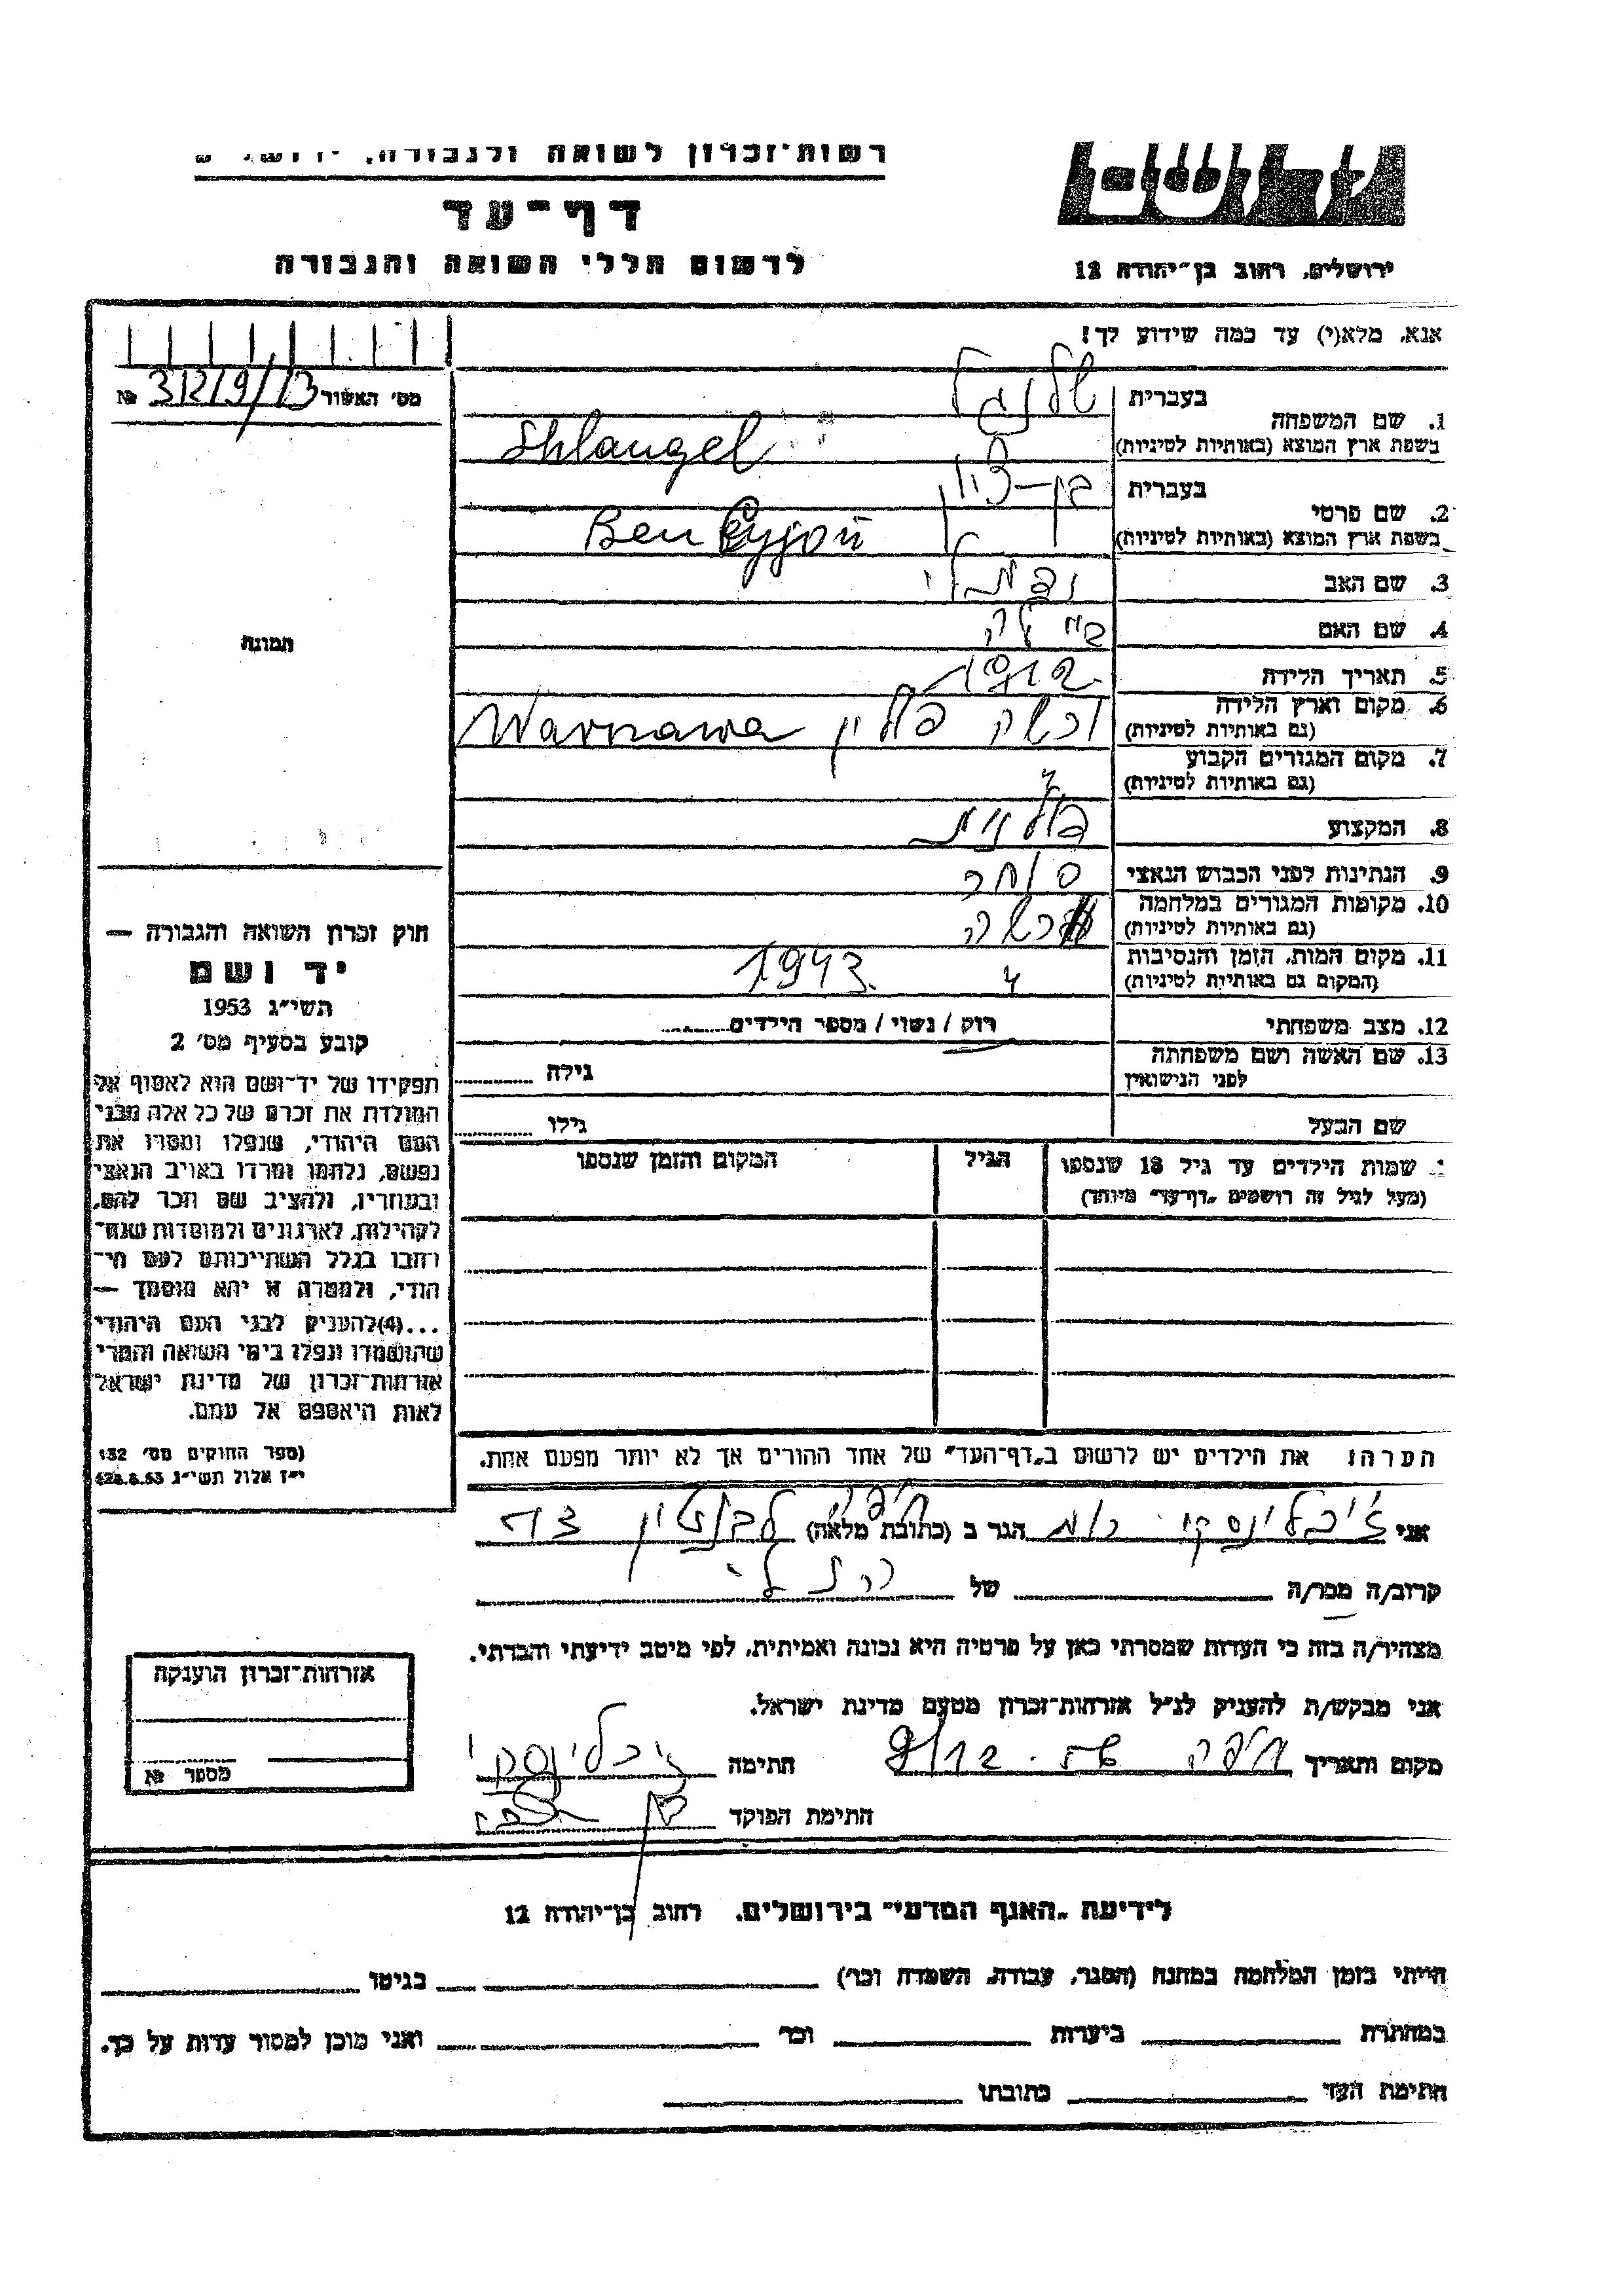 רשות־זכרון לשואה ולגבורה,
דף־עד
לרשום חללי השואה והגבורה
ירושלים, רחוב בן־יהודה 12
אנא, מלא(י) עד כמה שידוע לך!
מס׳ האשור № 313/9/13
1. שם המשפחה בעברית שלנגל
בשפת ארץ המוצא (באותיות לטיניות) Shlangel
2. שם פרטי בעברית בן-ציון
בשפת ארץ המוצא (באותיות לטיניות) Ben Cyjon
3. שם האב נפתלי
4. שם האם ביילה
5. תאריך הלידה
6. מקום וארץ הלידה (גם באותיות לטיניות) ורשה פולין Warszawa
7. מקום המגורים הקבוע (גם באותיות לטיניות)
8. המקצוע פולנית
9. הנתינות לפני הכבוש הנאצי סוחר
10. מקומות המגורים במלחמה (גם באותיות לטיניות) ורשה
11. מקום המות, הזמן והנסיבות (המקום גם באותיות לטיניות) 1943
12. מצב משפחתי רווק / נשוי / מספר הילדים
13. שם האשה ושם משפחתה לפני הנישואין גילה
שם הבעל גילו
שמות הילדים עד גיל 18 שנספו הגיל המקום והזמן שנספו
(מעל לגיל זה רושמים „דף־עד״ מיוחד)
תמונה
חוק זכרון השואה והגבורה —
יד ושם
תשי״ג 1953
קובע בסעיף מס׳ 2
תפקידו של יד־ושם הוא לאסוף אל
המולדת את זכרם של כל אלה מבני
העם היהודי, שנפלו ומסרו את
נפשם, נלחמו ומרדו באויב הנאצי
ובעוזריו, ולהציב שם וזכר להם,
לקהילות, לארגונים ולמוסדות שנח־
רבו בגלל השתייכותם לעם הי־
הודי, ולמטרה זו יהא מוסמך —
...(4) להעניק לבני העם היהודי
שהושמדו ונפלו בימי השואה והמרי
אזרחות־זכרון של מדינת ישראל
לאות היאספם אל עמם.
(ספר החוקים מס׳ 132
י״ז אלול תשי״ג 28.8.53)
הערה: את הילדים יש לרשום ב„דף־העד״ של אחד ההורים אך לא יותר מפעם אחת.
אני הגר ב (כתובת מלאה) חיפה
קרוב/ה מכר/ה של
מצהיר/ה בזה כי העדות שמסרתי כאן על פרטיה היא נכונה ואמיתית, לפי מיטב ידיעתי והכרתי.
אני מבקש/ת להעניק לנ״ל אזרחות־זכרון מטעם מדינת ישראל.
מקום ותאריך חיפה חתימה
חתימת הפוקד
אזרחות־זכרון הוענקה
מספר №
לידיעת „האגף המדעי״ בירושלים, רחוב בן־יהודה 12
הייתי בזמן המלחמה במחנה (הסגר, עבודה, השמדה וכו׳) בגיטו
במחתרת ביערות וכו׳ ואני מוכן למסור עדות על כך.
חתימת העד כתובתו